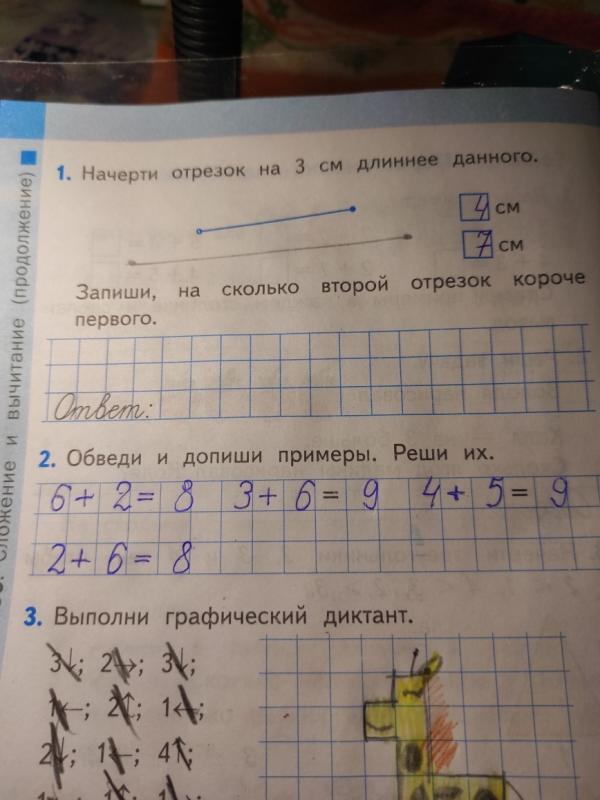 Сложение и вычитание (продолжение)
1. Начерти отрезок на 3 см длиннее данного.
4 см
7 см
Запиши, на сколько второй отрезок короче
первого.
Ответ:
2. Обведи и допиши примеры. Реши их.
6+2=8 3+6=9 4+5=9
2+6=8
3. Выполни графический диктант.
3↓; 2→; 3↓;
1←; 2↑; 1←;
2↓; 1←; 4↑;